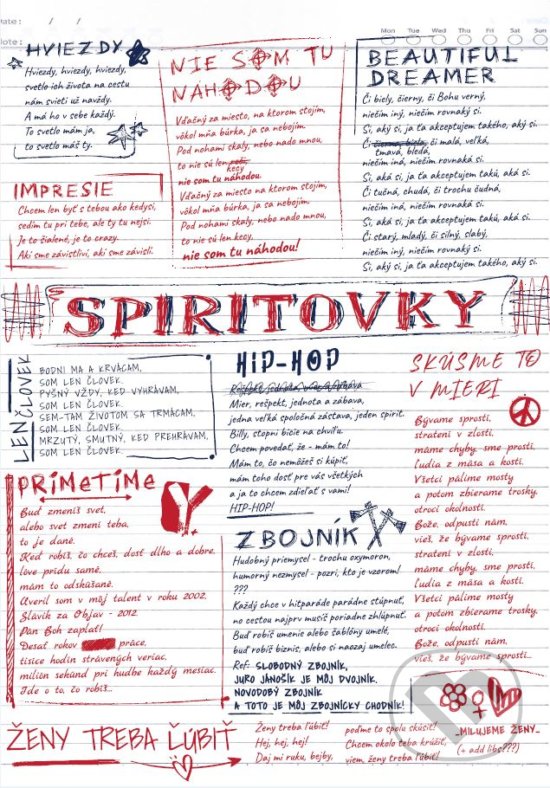 Date: / /
Note:
Mon Tue Wed Thu Fri Sat Sun
HVIEZDY
Hviezdy, hviezdy, hviezdy,
svetlo ich života na cestu
nám svieti už navždy.
A má ho v sebe každý.
To svetlo mám ja,
to svetlo máš ty.
IMPRESIE
Chcem len byť s tebou ako kedysi,
sedím tu pri tebe, ale ty tu nejsi.
Je to šialené, je to crazy.
Akí sme závistliví, akí sme závislí.
NIE SOM TU
NÁHODOU
Vďačný za miesto, na ktorom stojím,
vôkol mňa búrka, ja sa nebojím.
Pod nohami skaly, nebo nado mnou,
to nie sú len kecy,
nie som tu náhodou.
Vďačný za miesto na ktorom stojím,
vôkol mňa búrka, ja sa nebojím.
Pod nohami skaly, nebo nado mnou,
to nie sú len kecy,
nie som tu náhodou!
BEAUTIFUL
DREAMER
Či biely, čierny, či Bohu verný,
niečím iný, niečím rovnaký si.
Si, aký si, ja ťa akceptujem takého, aký si.
Či čierna, biela, či malá, veľká,
tmavá, bledá,
niečím iná, niečím rovnaká si.
Si, aká si, ja ťa akceptujem takú, aká si.
Či tučná, chudá, či trochu čudná,
niečím iná, niečím rovnaká si.
Si, aká si, ja ťa akceptujem takú, aká si.
Či starý, mladý, či silný, slabý,
niečím iný, niečím rovnaký si.
Si, aký si, ja ťa akceptujem takého, aký si.
SPIRITOVKY
LEN ČLOVEK
BODNI MA A KRVÁCAM,
SOM LEN ČLOVEK.
PYŠNÝ VŽDY, KEĎ VYHRÁVAM,
SOM LEN ČLOVEK.
SEM-TAM ŽIVOTOM SA TRMÁCAM,
SOM LEN ČLOVEK.
MRZUTÝ, SMUTNÝ, KEĎ PREHRÁVAM,
SOM LEN ČLOVEK.
PRIMETIME
Buď zmeníš svet,
alebo svet zmení teba,
to je dané.
Keď robíš, čo chceš, dosť dlho a dobre,
love prídu samé,
mám to odskúšané.
Uveril som v môj talent v roku 2002.
Slávik za Objav - 2012.
Pán Boh zaplať!
Desať rokov práce,
tisíce hodín strávených veriac,
milión sekúnd pri hudbe každý mesiac.
Ide o to, čo robíš...
HIP-HOP
Mier, rešpekt, jednota a zábava,
jedna veľká spoločná zástava, jeden spirit.
Billy, stopni bicie na chvíľu.
Chcem povedať, že - mám to!
Mám to, čo nemôžeš si kúpiť,
mám toho dosť pre vás všetkých
a ja to chcem zdieľať s vami!
HIP-HOP!
ZBOJNÍK
Hudobný priemysel - trochu oxymoron,
humorný nezmysel - pozri, kto je vzorom!
???
Každý chce v hitparáde parádne stúpnuť,
no cestou najprv musíš poriadne zhlúpnuť.
Buď robíš umenie alebo šablóny umelé,
buď robíš biznis, alebo si naozaj umelec.
Ref: SLOBODNÝ ZBOJNÍK,
JURO JÁNOŠÍK JE MÔJ DVOJNÍK.
NOVODOBÝ ZBOJNÍK
A TOTO JE MÔJ ZBOJNÍCKY CHODNÍK!
SKÚSME TO
V MIERI
Bývame sprostí,
stratení v zlosti,
máme chyby, sme prostí,
ľudia z mäsa a kostí.
Všetci pálime mosty
a potom zbierame trosky,
otroci okolností.
Bože, odpusti nám,
vieš, že bývame sprostí,
stratení v zlosti,
máme chyby, sme prostí,
ľudia z mäsa a kostí.
Všetci pálime mosty
a potom zbierame trosky,
otroci okolností.
Bože, odpusti nám,
vieš, že bývame sprostí...
ŽENY TREBA ĽÚBIŤ
Ženy treba ľúbiť!
Hej, hej, hej!
Daj mi ruku, bejby,
poďme to spolu skúsiť!
Chcem okolo teba krúžiť,
viem, ženy treba ľúbiť!
_MILUJEME ŽENY_
(+ add libs???)